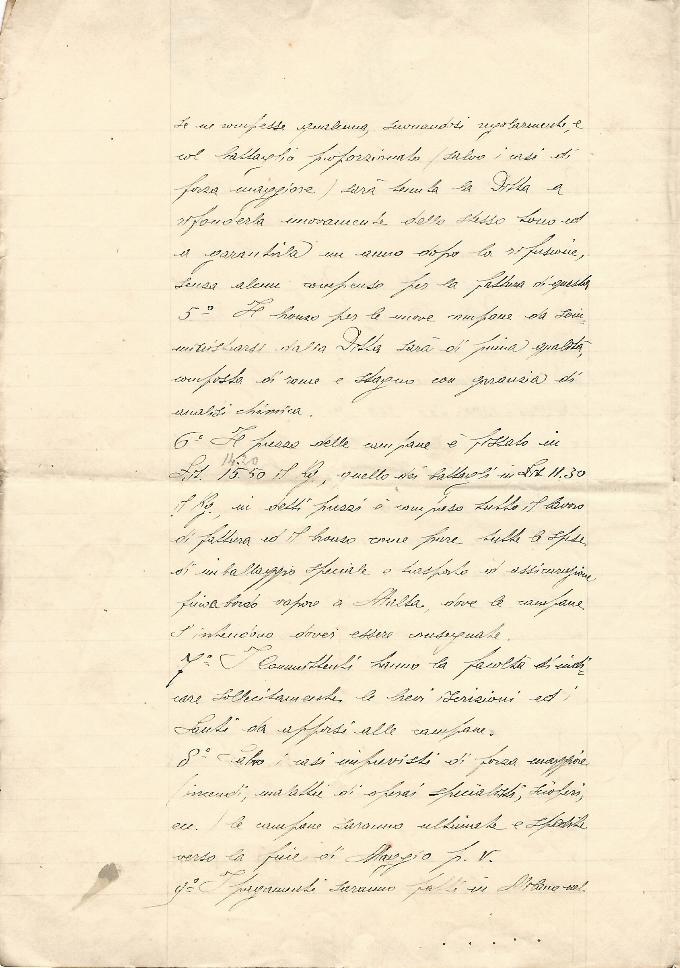 se ne rompesse qualcuna, suonandosi regolarmente, e
col battaglio proporzionato (salvo i casi di
forza maggiore) sarà tenuta la Ditta a
rifonderla nuovamente dello stesso tono ed
a garantirla un anno dopo la rifusione,
senza alcun compenso per la fattura di questa
5º Il bronzo per le nuove campane da som-
ministrarsi dalla Ditta sarà di prima qualità,
composta di rame e stagno con garanzia di
analisi chimica.
6º Il prezzo delle campane è fissato in
14.20
Lit. 15.50 il Kg, quello dei battagli in Lit 11.30
il Kg, in detti prezzi è compreso tutto il lavoro
di fattura ed il bronzo come pure tutte le spese
di imballaggio speciale e trasporto ed assicurazione
fino a bordo vapore a Malta, dove le campane
s'intendono dover essere consegnate.
7º I Committenti hanno la facoltà di indi-
care sollecitamente le brevi iscrizioni ed i
Santi da apporsi alle campane.
8º Salvo i casi imprevisti di forza maggiore
(incendi, malattie di operai specialisti, scioperi,
ecc.) le campane saranno ultimate e spedite
verso la fine di Maggio p. v.
9º I pagamenti saranno fatti in Milano col